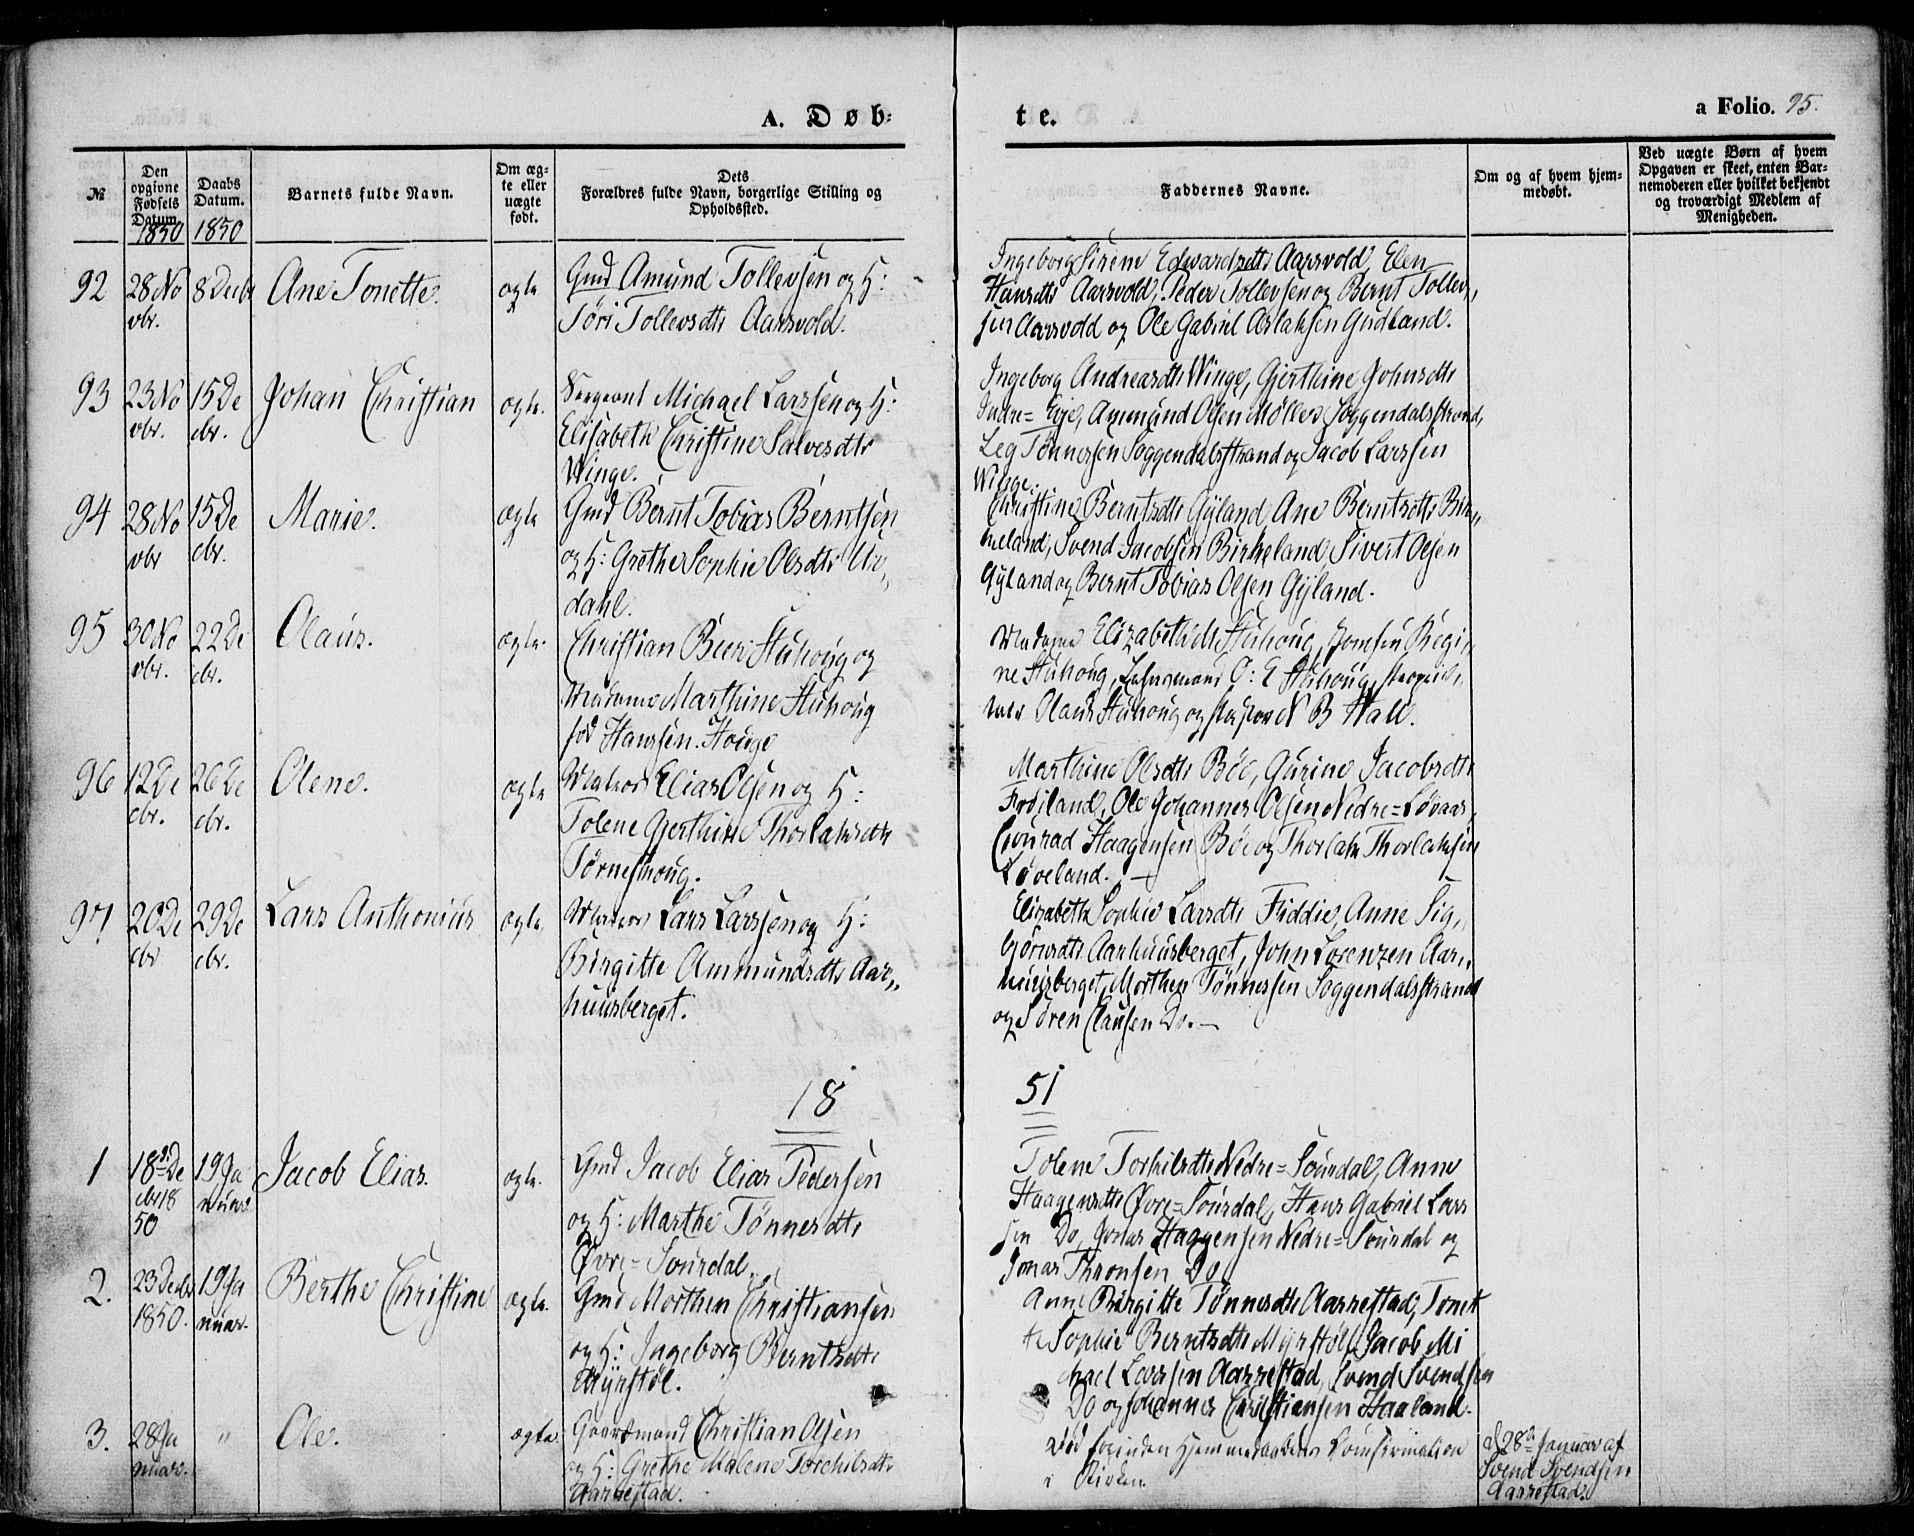 A. Døb-
te.
a Folio. 95.
№
Den opgivne Fødsels Datum. 1850
Daabs Datum. 1850
Barnets fulde Navn.
Om ægte eller uægte født.
Dets Forældres fulde Navn, borgerlige Stilling og Opholdssted.
Faddernes Navne.
Om og af hvem hjemmedøbt.
Ved uægte Børn af hvem Opgaven er skeet, enten Barnemoderen eller hvilket bekjendt og troværdigt Medlem af Menigheden.
92
28 No
vbr.
8 Decbr
Ane Tonette.
ægte
Gmd Amund Tollevsen og H:
Töri Tollevsdtr Aarsvold.
Ingeborg Sirene Edwardsdtr Aarsvold, Elen
Hansdtr Aarsvold, Peder Tollevsen og Bernt Tollev,,
sen Aarsvold og Ole Gabriel Aslaksen Gudland.
93
23 No
vbr.
15 De
cbr.
Johan Christian
ægte.
Sergeant Michael Larssen og H:
Elisabeth Christine Salvesdtr
Winge.
Ingeborg Andreasdtr Winge, Gjerthine Johnsdtr
Indre=Eye, Ammund Olsen Møller Soggendalsstrand,
Leg Tønnessen Soggendalsstrand og Jacob Larssen
Winge.
94
28 No
vbr
15 De
cbr.
Marie.
ægte
Gmd Bernt Tobias Berntsen
og H: Grethe Sophie Olsdtr Ur,,
dahl.
Christine Berntsdtr Gyland, Ane Berntsdtr Bir,,
keland, Svend Jacobsen Birkeland, Sivert Olsen
Gyland og Bernt Tobias Olsen Gyland.
95
30 No
vbr.
22 De
cbr.
Olaus.
ægte.
Christian Beer Stuhoug og
Madame Marthine Stuhoug
fød Hanssen. Houge
Madame Elizabeth Stuhoug, Jomfru Regi,,
ne Stuhoug, Lehnsmand O: E Stuhoug,
Olaus Stuhoug og N B Hall.
96
12 De
cbr.
26 De
cbr.
Olene.
ægte
Elias Olsen og H:
Tolene Gjerthine Thorlaksdtr
Tørneshoug.
Marthine Olsdtr Böe, Gurine Jacobsdtr
Frøiland, Ole Johannes Olsen Nedre=Løvaas,
Conrad Haagensen Böe og Thorlak Thorlaksen
Løveland. —
97
20 De
cbr
29 De
cbr.
Lars Anthonius
ægte.
Lars Larssen og H:
Birgitte Ammundsdtr Aar,,
huusberget.
Elizabeth Sophie Larsdtr Fiddie, Anne Sig,,
björnsdtr Aarhuusberget, John Lorenzen Aar,,
huusberget, Morthen Tönnessen Soggendalsstrand
og Sören Clausen Do. —
18
51
1
18de De
cbr 18
50
19 Ja
nuar
Jacob Elias.
ægte.
Gmd Jacob Elias Pedersen
og H: Marthe Tønnesdtr
Øvre=Sourdal.
Tolene Torkilsdtr Nedre=Sourdal, Anne
Haagensdtr Øvre=Sourdal, Hans Gabriel Lars
sen Do, Jonas Haagensen Nedre=Sourdal og
Jonas Thronsen Do.
2.
23 Decbr
1850.
19 Ja
nuar.
Berthe Christine
ægte.
Gmd Morthen Christiansen
og H: Ingeborg Berntsdtr
Myrstøl.
Anne Birgitte Tønnesdtr Aarrestad, Tonet
te Sophie Berntsdtr Myrstøl, Jacob Mi
chael Larssen Aarrestad, Svend Svendsen
Do og Johannes Christiansen Haaland.
3.
28 Ja
nuar.
"
Ole.
ægte.
Gaardmand Christian Olsen
og H: Grethe Malene Torchilsdtr
Aarrestad.
Död forinden Hjemmedaabens Comfirmation
i Kirken.
d 28de Januar af
Svend Svendsen
Aarrestad.